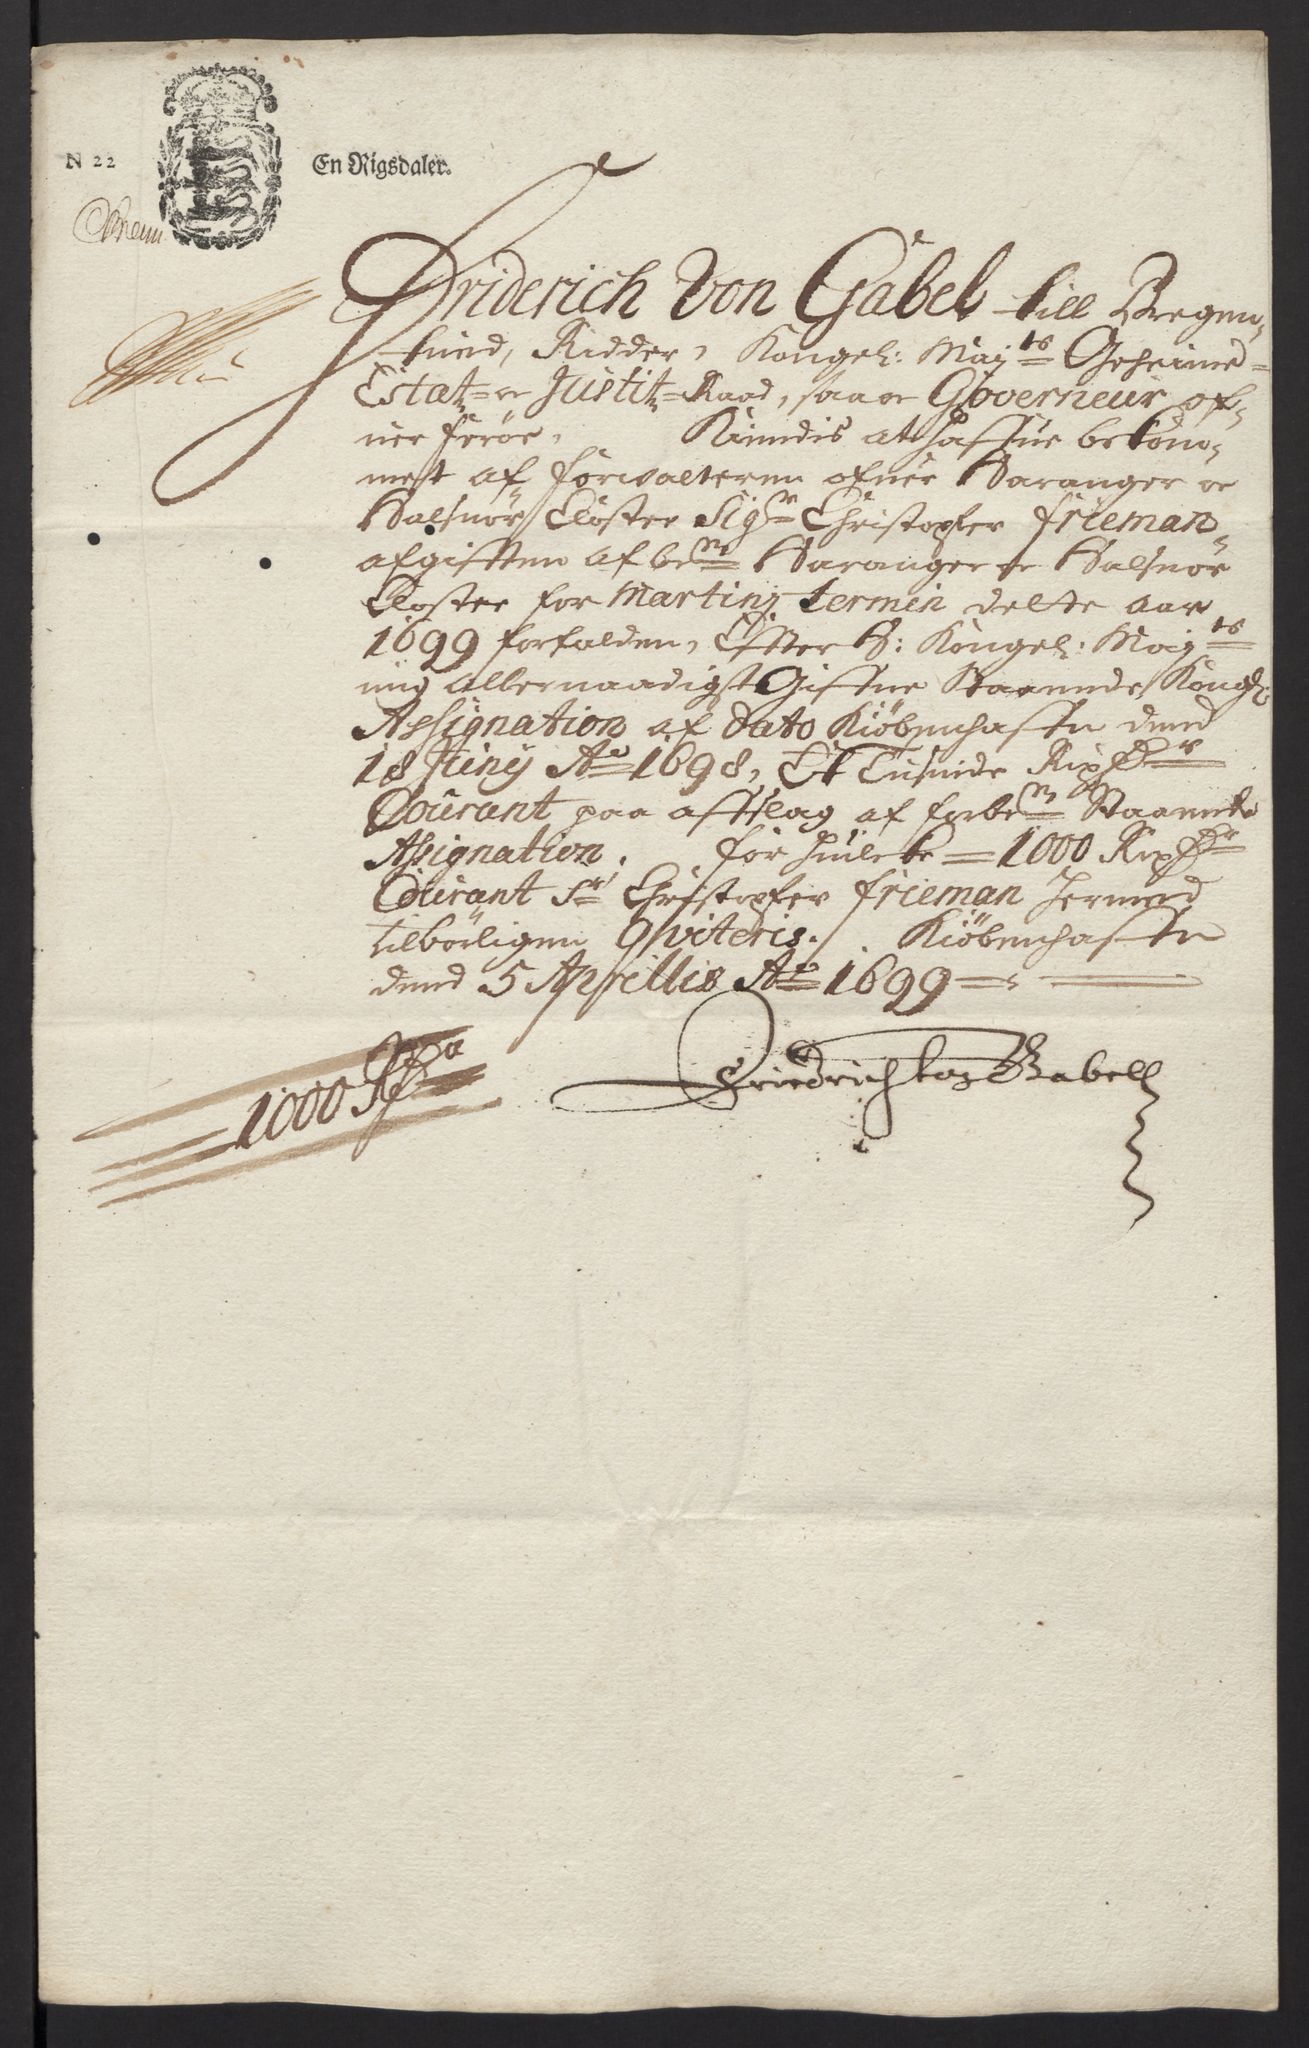 N 22
En Rigsdaler.
Friderich Von Gabel till Bregen,,
tued, Ridder, Kongel: May:ts Geheime-
Estatz- oc Justitz-Raad, saa oc Governeur of,,
uer Feröe, Kiendis at haffue bekom,,
met af Forvalteren ofuer Baranger oc
Halsnöe Closter Sigr Christopher Frieman,
afgifften af bete Baranger oc Halsnöe
Closter for Martinj termin dette aar
1699 forfalden, Effter H: Kongel: Mayts
mig Allernaadigst Giffne Staaende Kongl:
Assignation af Dato Kiöbenhaffn dend
18 Junij Ao 1698, Et Tusinde Rixdr
Courant paa affslag af forbete Staaende
Assignation. for huilcke = 1000 Rixdr
Courant Sr Christopher Frieman hermed
tilbörligen Qviteris. Kiöbenhaffn
dend 5 Aprillis Ao 1699
1000 Rdr
Friedrich von Gabell